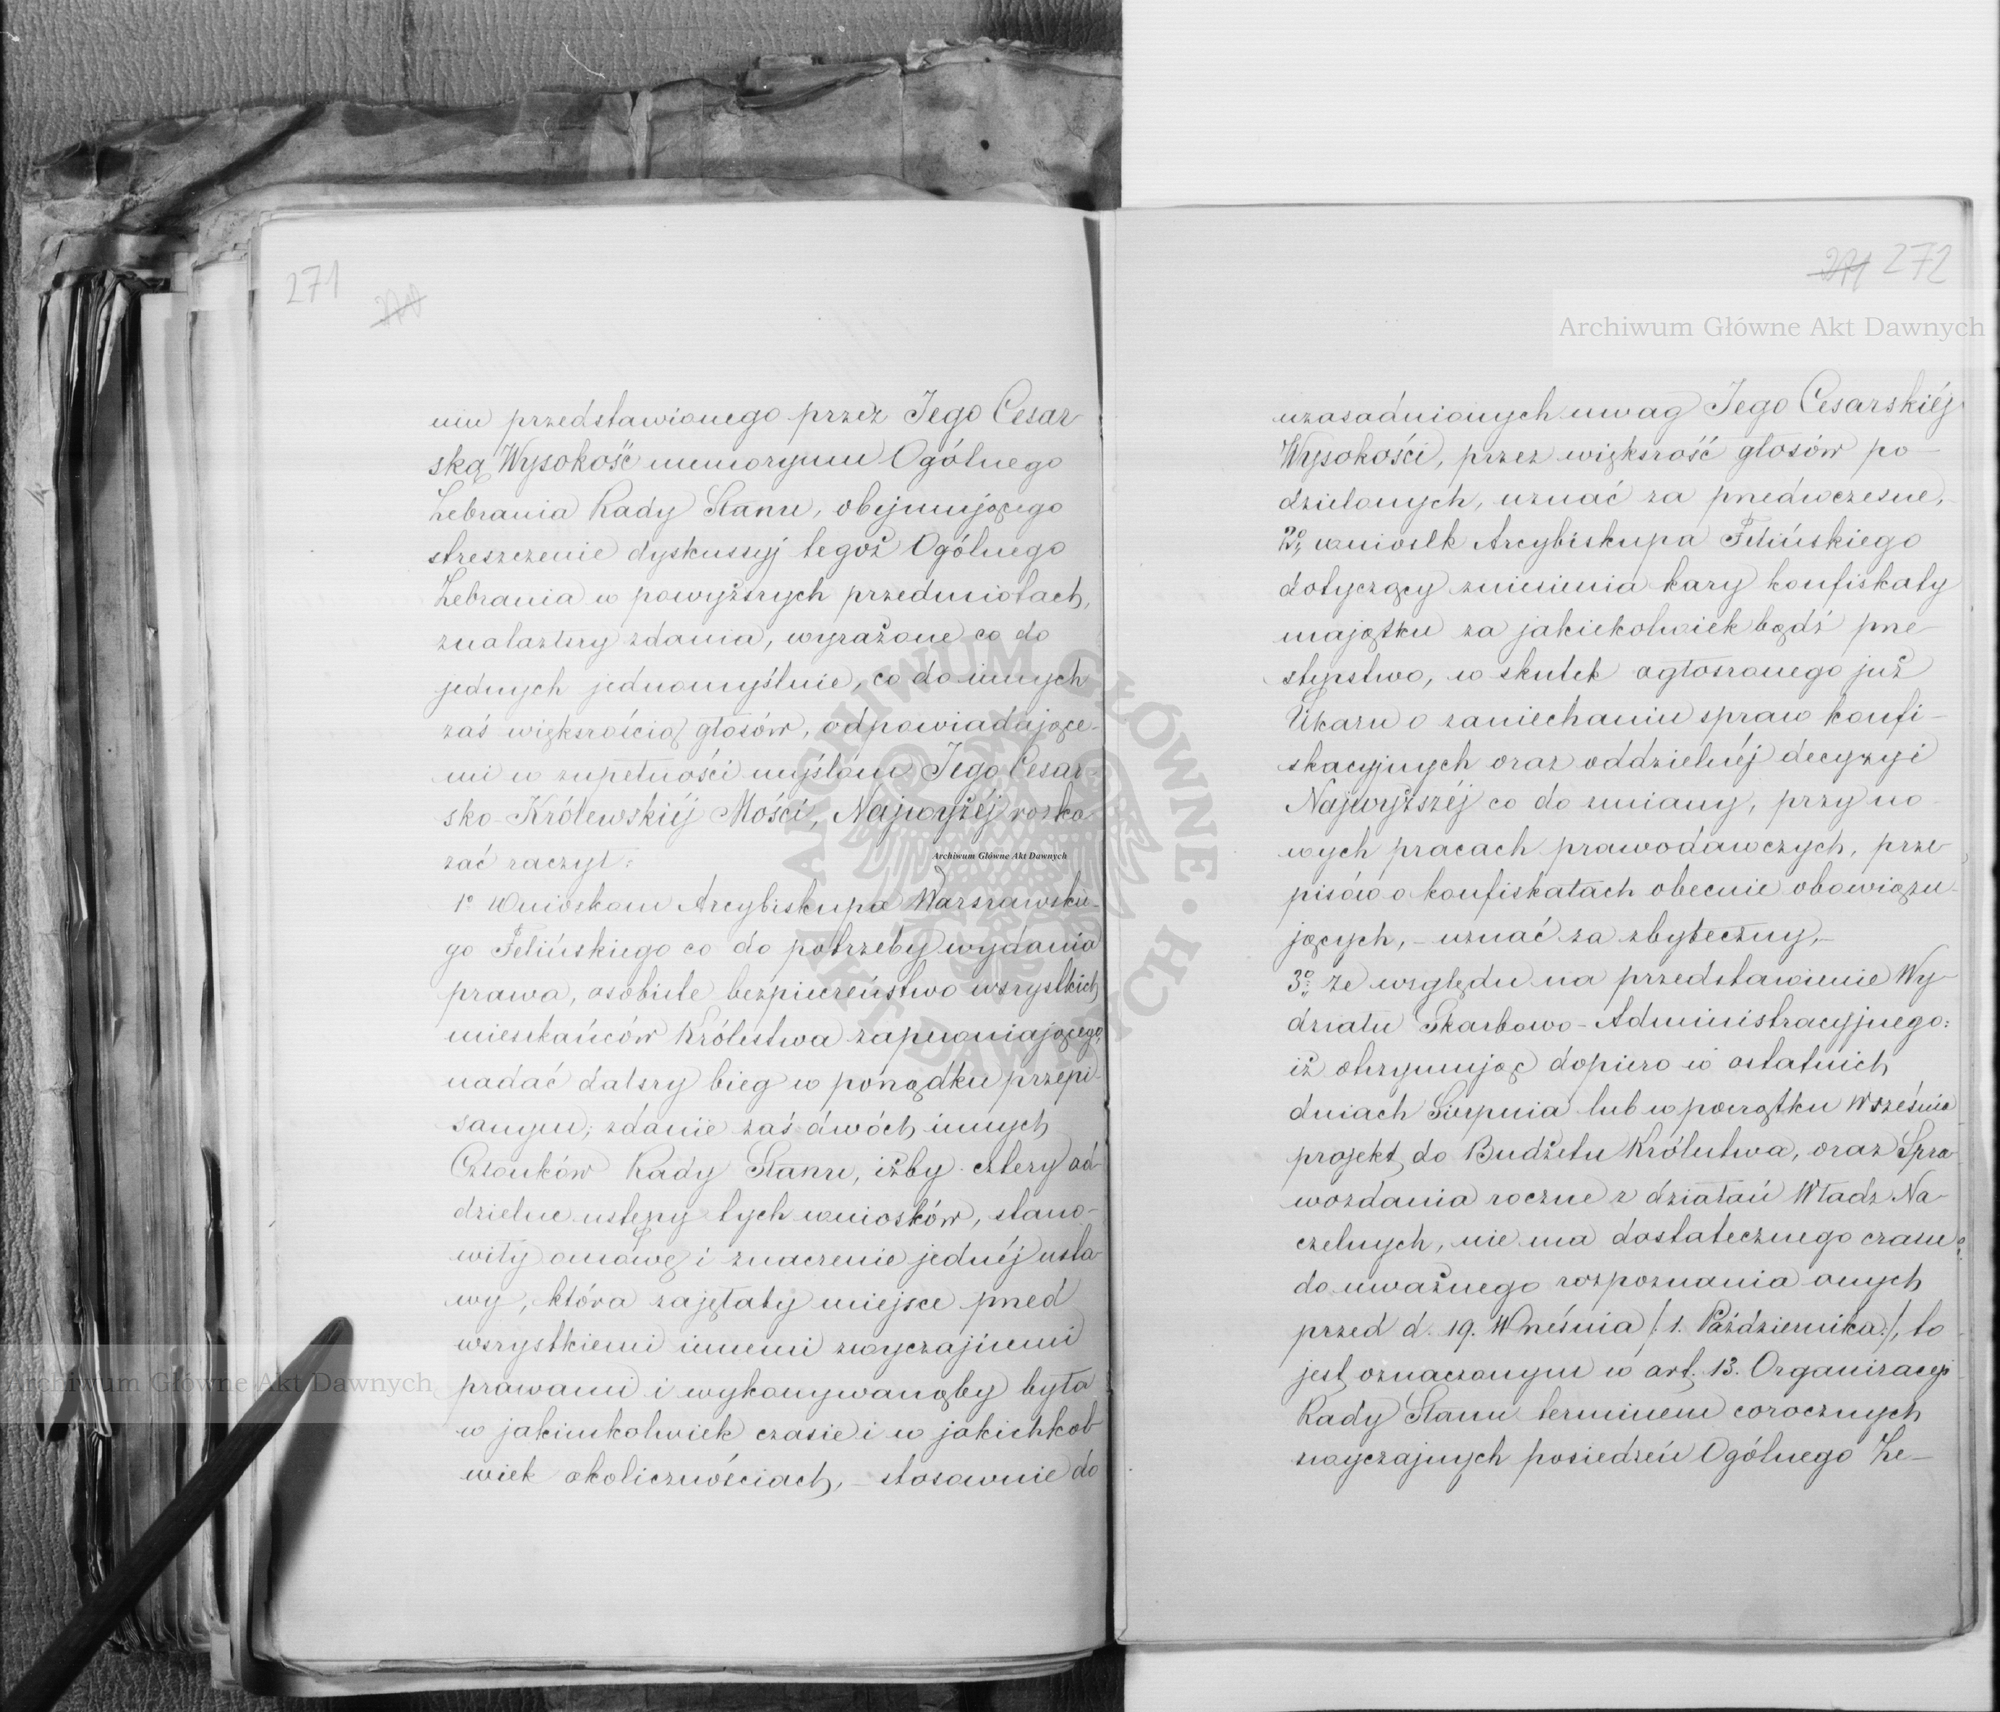 271
270
niu przedstawionego przez Jego Cesar-
ską Wysokość memoryału Ogólnego
Zebrania Rady Stanu, obejmującego
streszczenie dyskussyj tegoż Ogólnego
Zebrania w powyższych przedmiotach,
znalazłszy zdania, wyrażone co do
jednych jednomyślnie, co do innych
zaś większością głosów, odpowiadające-
mi w zupełności myślom Jego Cesar-
sko-Królewskiéj Mości, Najwyżéj rozka-
zać raczył:
1º wnioskom Arcybiskupa Warszawskie-
go Felińskiego co do potrzeby wydania
prawa, osobiste bezpieczeństwo wszystkich
mieszkańców Królestwa zapewniającego,
nadać dalszy bieg w porządku przepi-
sanym; zdanie zaś dwóch innych
Członków Rady Stanu, iżby cztery od-
dzielne ustępy tych wniosków, stano-
wiły osnowę i znaczenie jednéj usta-
wy, która zajęłaby miejsce przed
wszystkiemi innemi zwyczajnemi
prawami i wykonywanąby była
w jakimkolwiek czasie i w jakichkol-
wiek okolicznościach, - stosownie do
271 272
Archiwum Główne Akt Dawnych
uzasadnionych uwag Jego Cesarskiéj
Wysokości, przez większość głosów po-
dzielonych, uznać za przedwczesne,
2º, wniosek Arcybiskupa Felińskiego
dotyczący zniesienia kary konfiskaty
majątku za jakiekolwiek bądź prze-
stępstwo, w skutek ogłoszonego już
Ukazu o zaniechaniu spraw konfi-
skacyjnych oraz oddzielnéj decyzyi
Najwyższéj co do zmiany, przy no-
wych pracach prawodawczych, prze-
pisów o konfiskatach obecnie obowiązu-
jących, - uznać za zbyteczny, -
3º ze względu na przedstawienie Wy-
działu Skarbowo-Administracyjnego:
iż otrzymując dopiero w ostatnich
dniach Sierpnia lub w początku Września
projekt do Budżetu Królestwa, oraz Spra-
wozdania roczne z działań Władz Na-
czelnych, nie ma dostatecznego czasu
do uważnego rozpoznania onych
przed d. 19. Września /:1. Października:/, to
jest oznaczonym w art. 13. Organizacyi
Rady Stanu terminem corocznych
zwyczajnych posiedzeń Ogólnego Ze-
Archiwum Główne Akt Dawnych
Archiwum Główne Akt Dawnych
ARCHIWUM GŁÓWNE AKT DAWNYCH